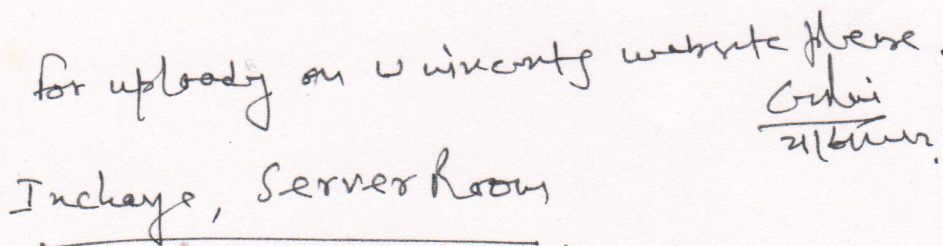 for uploading on University website please.
Incharge, Server Room